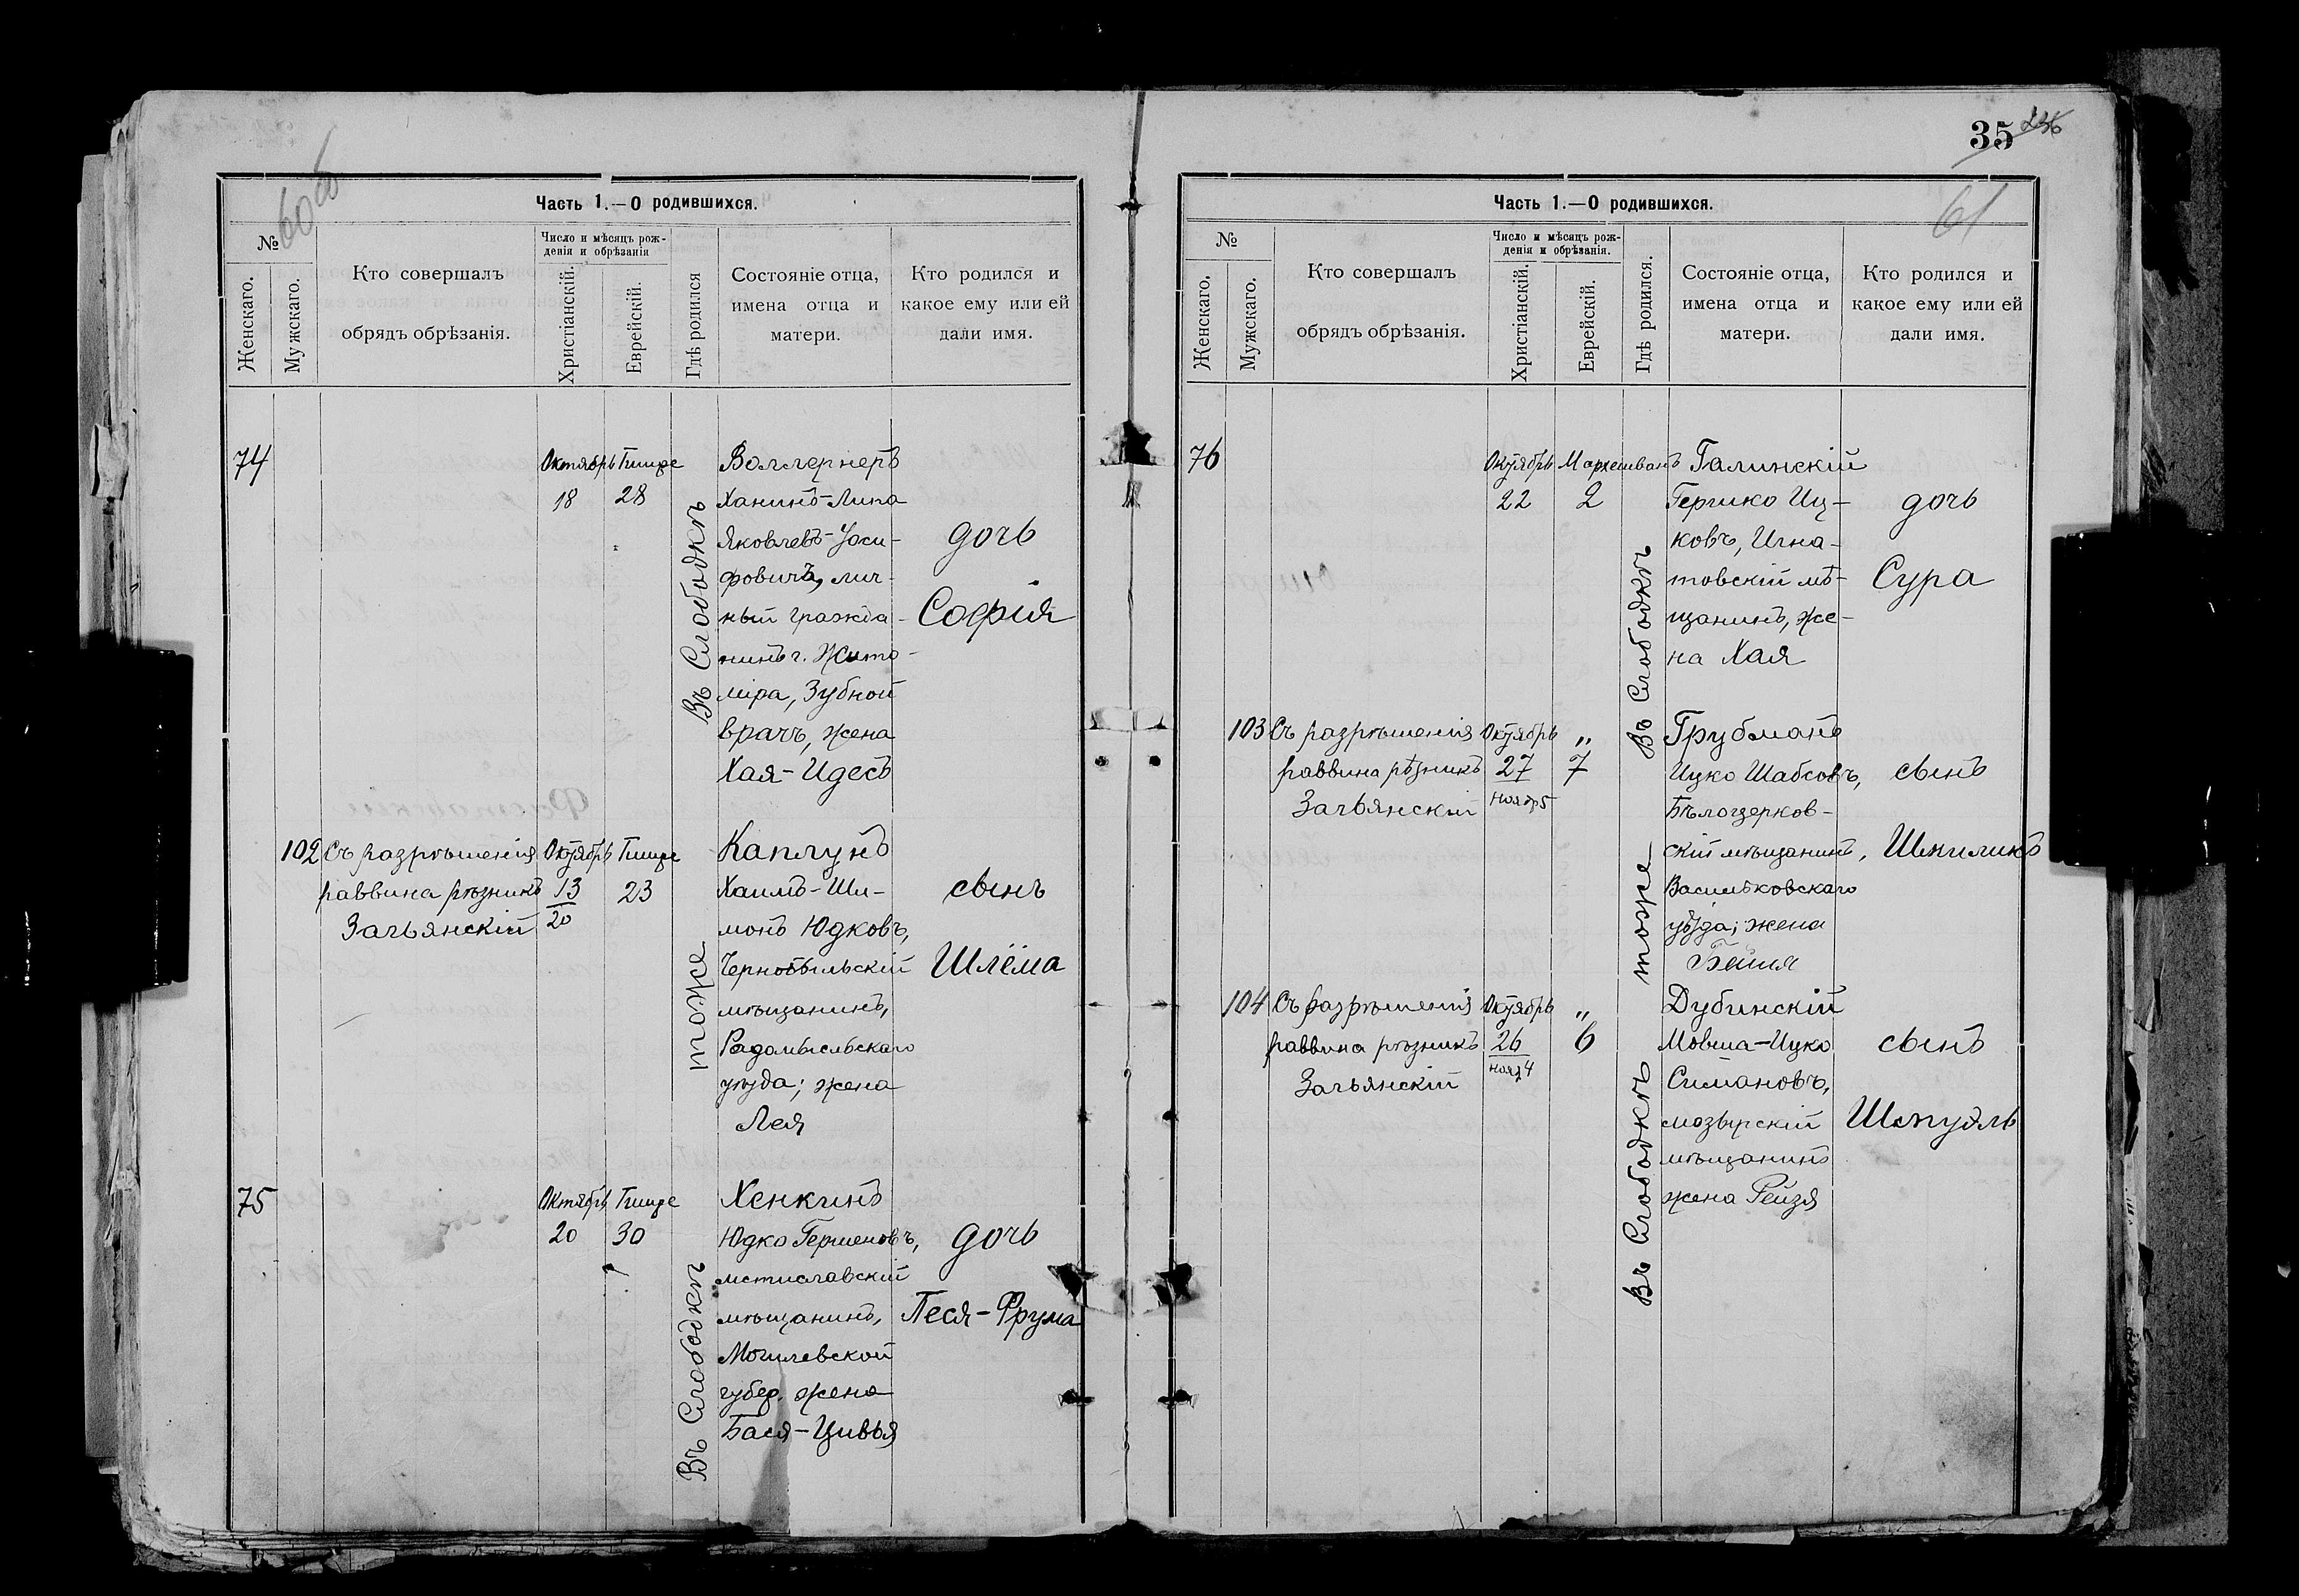 60 об
Часть 1.—О родившихся.
№
Женскаго.
Мужскаго.
Кто совершалъ
обрядъ обрѣзанія.
Число и мѣсяцъ рож-
денія и обрѣзанія
Христіанскій.
Еврейскій.
Гдѣ родился
Состояніе отца,
имена отца и
матери.
Кто родился и
какое ему или ей
дали имя.
74
Октябрь Тишре
18 28
Въ Слободкѣ
Воллернеръ
Ханинъ-Липа
Яковлевъ-Іоси-
фовичъ, лич-
ный гражда-
нинъ г. Жито-
міра, Зубной
врачъ, жена
Хая-Идесъ
дочь
Софія
102 Съ разрѣшенія Октябрь Тишре
раввина рѣзникъ 13 23
Зачьянскій 20
тоже
Каплунъ
Хаимъ-Ши-
монъ Юдковъ,
Чернобыльскій
мѣщанинъ,
Радомысльскаго
уѣзда; жена
Лея
сынъ
Шлёма
75
Октябрь Тишре
20 30
Въ Слободкѣ
Хенкинъ
Юдко Гершеновъ,
мстиславскій
мѣщанинъ,
Могилевской
губер. жена
Бася-Цивья
дочь
Песя-Фрума
35 236
61
Часть 1.—О родившихся.
№
Женскаго.
Мужскаго.
Кто совершалъ
обрядъ обрѣзанія.
Число и мѣсяцъ рож-
денія и обрѣзанія.
Христіанскій.
Еврейскій.
Гдѣ родился.
Состояніе отца,
имена отца и
матери.
Кто родился и
какое ему или ей
дали имя.
76
Октябрь Мархешванъ
22 2
Въ Слободкѣ
Галинскій
Гершко Иц-
ковъ, Игна-
товскій мѣ-
щанинъ, же-
на Хая
дочь
Сура
103 Съ разрѣшенія Октябрь „
раввина рѣзникъ 27 7
Зачьянскій Нояб 5
тоже
Грубманъ
Ицко Шабсовъ,
Бѣлоцерков-
скій мѣщанинъ,
Васильковскаго
уѣзда; жена
Бейля
сынъ
Шмиликъ
104 Съ разрѣшенія Октябрь „
раввина рѣзникъ 26 6
Зачьянскій Нояб 4
Въ Слободкѣ
Дубинскій
Мовша-Ицко
Симановъ,
мозырскій
мѣщанинъ
жена Рейзя
сынъ
Шмуэль